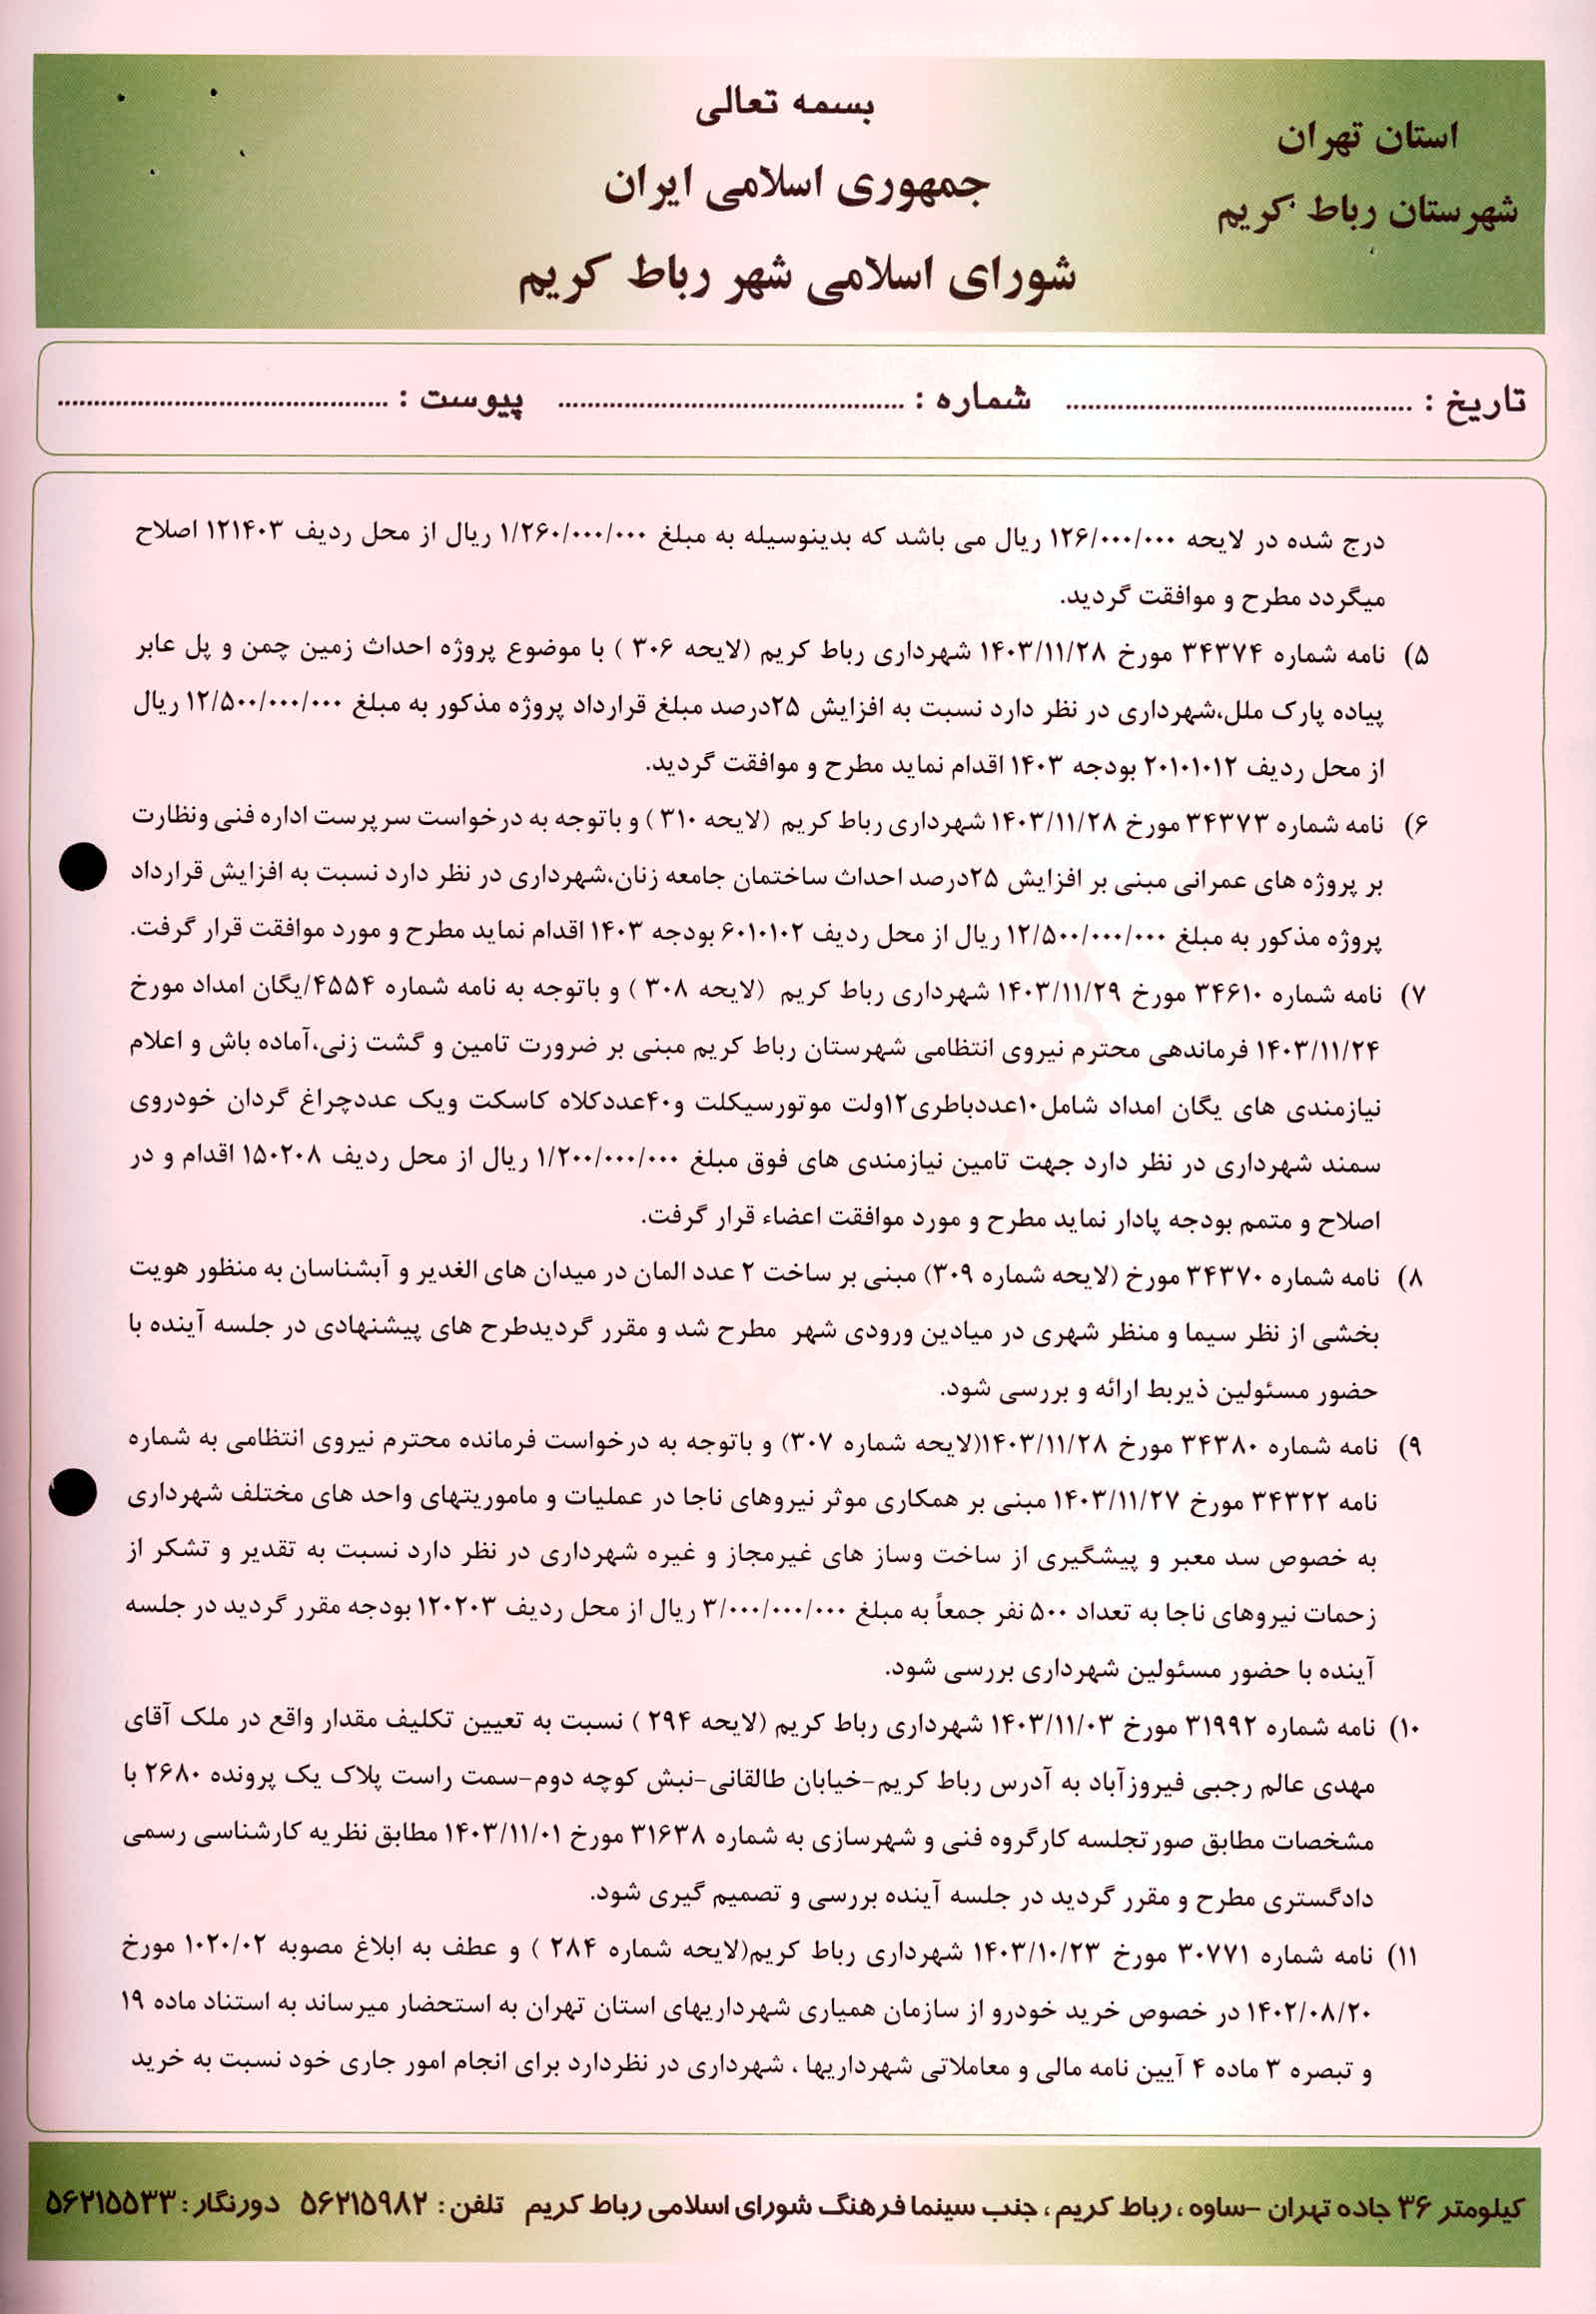 بسمه تعالی
استان تهران
جمهوری اسلامی ایران
شهرستان رباط کریم
شورای اسلامی شهر رباط کریم
تاریخ : ............ شماره : ............ پیوست : ............
درج شده در لایحه ۱۲۶/۰۰۰/۰۰۰ ریال می باشد که بدینوسیله به مبلغ ۱/۲۶۰/۰۰۰/۰۰۰ ریال از محل ردیف ۱۲۱۴۰۳ اصلاح
میگردد مطرح و موافقت گردید.
۵) نامه شماره ۳۴۳۷۴ مورخ ۱۴۰۳/۱۱/۲۸ شهرداری رباط کریم (لایحه ۳۰۶ ) با موضوع پروژه احداث زمین چمن و پل عابر
پیاده پارک ملل،شهرداری در نظر دارد نسبت به افزایش ۲۵درصد مبلغ قرارداد پروژه مذکور به مبلغ ۱۲/۵۰۰/۰۰۰/۰۰۰ ریال
از محل ردیف ۲۰۱۰۱۰۱۲ بودجه ۱۴۰۳ اقدام نماید مطرح و موافقت گردید.
۶) نامه شماره ۳۴۳۷۳ مورخ ۱۴۰۳/۱۱/۲۸ شهرداری رباط کریم (لایحه ۳۱۰ ) و باتوجه به درخواست سرپرست اداره فنی ونظارت
بر پروژه های عمرانی مبنی بر افزایش ۲۵درصد احداث ساختمان جامعه زنان،شهرداری در نظر دارد نسبت به افزایش قرارداد
پروژه مذکور به مبلغ ۱۲/۵۰۰/۰۰۰/۰۰۰ ریال از محل ردیف ۶۰۱۰۱۰۲ بودجه ۱۴۰۳ اقدام نماید مطرح و مورد موافقت قرار گرفت.
۷) نامه شماره ۳۴۶۱۰ مورخ ۱۴۰۳/۱۱/۲۹ شهرداری رباط کریم (لایحه ۳۰۸ ) و باتوجه به نامه شماره ۴۵۵۴/یگان امداد مورخ
۱۴۰۳/۱۱/۲۴ فرماندهی محترم نیروی انتظامی شهرستان رباط کریم مبنی بر ضرورت تامین و گشت زنی،آماده باش و اعلام
نیازمندی های یگان امداد شامل۱۰عددباطری۱۲ولت موتورسیکلت و۴۰عددکلاه کاسکت ویک عددچراغ گردان خودروی
سمند شهرداری در نظر دارد جهت تامین نیازمندی های فوق مبلغ ۱/۲۰۰/۰۰۰/۰۰۰ ریال از محل ردیف ۱۵۰۲۰۸ اقدام و در
اصلاح و متمم بودجه پادار نماید مطرح و مورد موافقت اعضاء قرار گرفت.
۸) نامه شماره ۳۴۳۷۰ مورخ (لایحه شماره ۳۰۹) مبنی بر ساخت ۲ عدد المان در میدان های الغدیر و آبشناسان به منظور هویت
بخشی از نظر سیما و منظر شهری در میادین ورودی شهر مطرح شد و مقرر گردیدطرح های پیشنهادی در جلسه آینده با
حضور مسئولین ذیربط ارائه و بررسی شود.
۹) نامه شماره ۳۴۳۸۰ مورخ ۱۴۰۳/۱۱/۲۸(لایحه شماره ۳۰۷) و باتوجه به درخواست فرمانده محترم نیروی انتظامی به شماره
نامه ۳۴۳۲۲ مورخ ۱۴۰۳/۱۱/۲۷ مبنی بر همکاری موثر نیروهای ناجا در عملیات و ماموریتهای واحد های مختلف شهرداری
به خصوص سد معبر و پیشگیری از ساخت وساز های غیرمجاز و غیره شهرداری در نظر دارد نسبت به تقدیر و تشکر از
زحمات نیروهای ناجا به تعداد ۵۰۰ نفر جمعاً به مبلغ ۳/۰۰۰/۰۰۰/۰۰۰ ریال از محل ردیف ۱۲۰۲۰۳ بودجه مقرر گردید در جلسه
آینده با حضور مسئولین شهرداری بررسی شود.
۱۰) نامه شماره ۳۱۹۹۲ مورخ ۱۴۰۳/۱۱/۰۳ شهرداری رباط کریم (لایحه ۲۹۴ ) نسبت به تعیین تکلیف مقدار واقع در ملک آقای
مهدی عالم رجبی فیروزآباد به آدرس رباط کریم-خیابان طالقانی-نبش کوچه دوم-سمت راست پلاک یک پرونده ۲۶۸۰ با
مشخصات مطابق صورتجلسه کارگروه فنی و شهرسازی به شماره ۳۱۶۳۸ مورخ ۱۴۰۳/۱۱/۰۱ مطابق نظریه کارشناسی رسمی
دادگستری مطرح و مقرر گردید در جلسه آینده بررسی و تصمیم گیری شود.
۱۱) نامه شماره ۳۰۷۷۱ مورخ ۱۴۰۳/۱۰/۲۳ شهرداری رباط کریم(لایحه شماره ۲۸۴ ) و عطف به ابلاغ مصوبه ۱۰۲۰/۰۲ مورخ
۱۴۰۲/۰۸/۲۰ در خصوص خرید خودرو از سازمان همیاری شهرداریهای استان تهران به استحضار میرساند به استناد ماده ۱۹
و تبصره ۳ ماده ۴ آیین نامه مالی و معاملاتی شهرداریها ، شهرداری در نظردارد برای انجام امور جاری خود نسبت به خرید
کیلومتر ۳۶ جاده تهران -ساوه ، رباط کریم ، جنب سینما فرهنگ شورای اسلامی رباط کریم تلفن : ۵۶۲۱۵۹۸۲ دورنگار : ۵۶۲۱۵۵۳۳